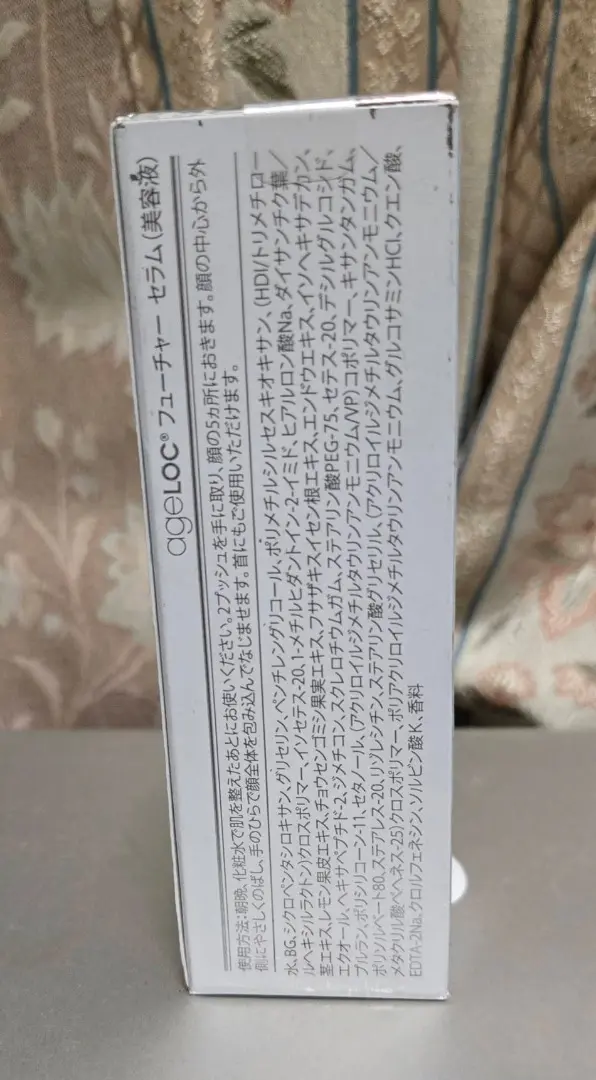 ageLOC® フューチャー セラム(美容液)
使用方法:朝晩、化粧水で肌を整えたあとにお使いください。2プッシュを手に取り、顔の5カ所におきます。顔の中心から外
側にやさしくのばし、手のひらで顔全体を包み込んでなじませます。首にもご使用いただけます。
水、BG、シクロペンタシロキサン、グリセリン、ペンチレングリコール、ポリメチルシルセスキオキサン、(HDI/トリメチロー
ルヘキシルラクトン)クロスポリマー、イソセテス-20、1-メチルヒダントイン-2-イミド、ヒアルロン酸Na、ダイサンチク葉/
茎エキス、レモン果皮エキス、チョウセンゴミシ果実エキス、フサザキスイセン根エキス、エンドウエキス、イソヘキサデカン、
エクオール、ヘキサペプチド-2、ジメチコン、スクレロチウムガム、ステアリン酸PEG-75、セテス-20、デシルグルコシド、
プルラン、ポリシリコーン-11、セタノール、(アクリロイルジメチルタウリンアンモニウム/VP)コポリマー、キサンタンガム、
ポリソルベート80、ステアレス-20、リゾレシチン、ステアリン酸グリセリル、(アクリロイルジメチルタウリンアンモニウム/
メタクリル酸ベヘネス-25)クロスポリマー、ポリアクリロイルジメチルタウリンアンモニウム、グルコサミンHCl、クエン酸、
EDTA-2Na、クロルフェネシン、ソルビン酸K、香料